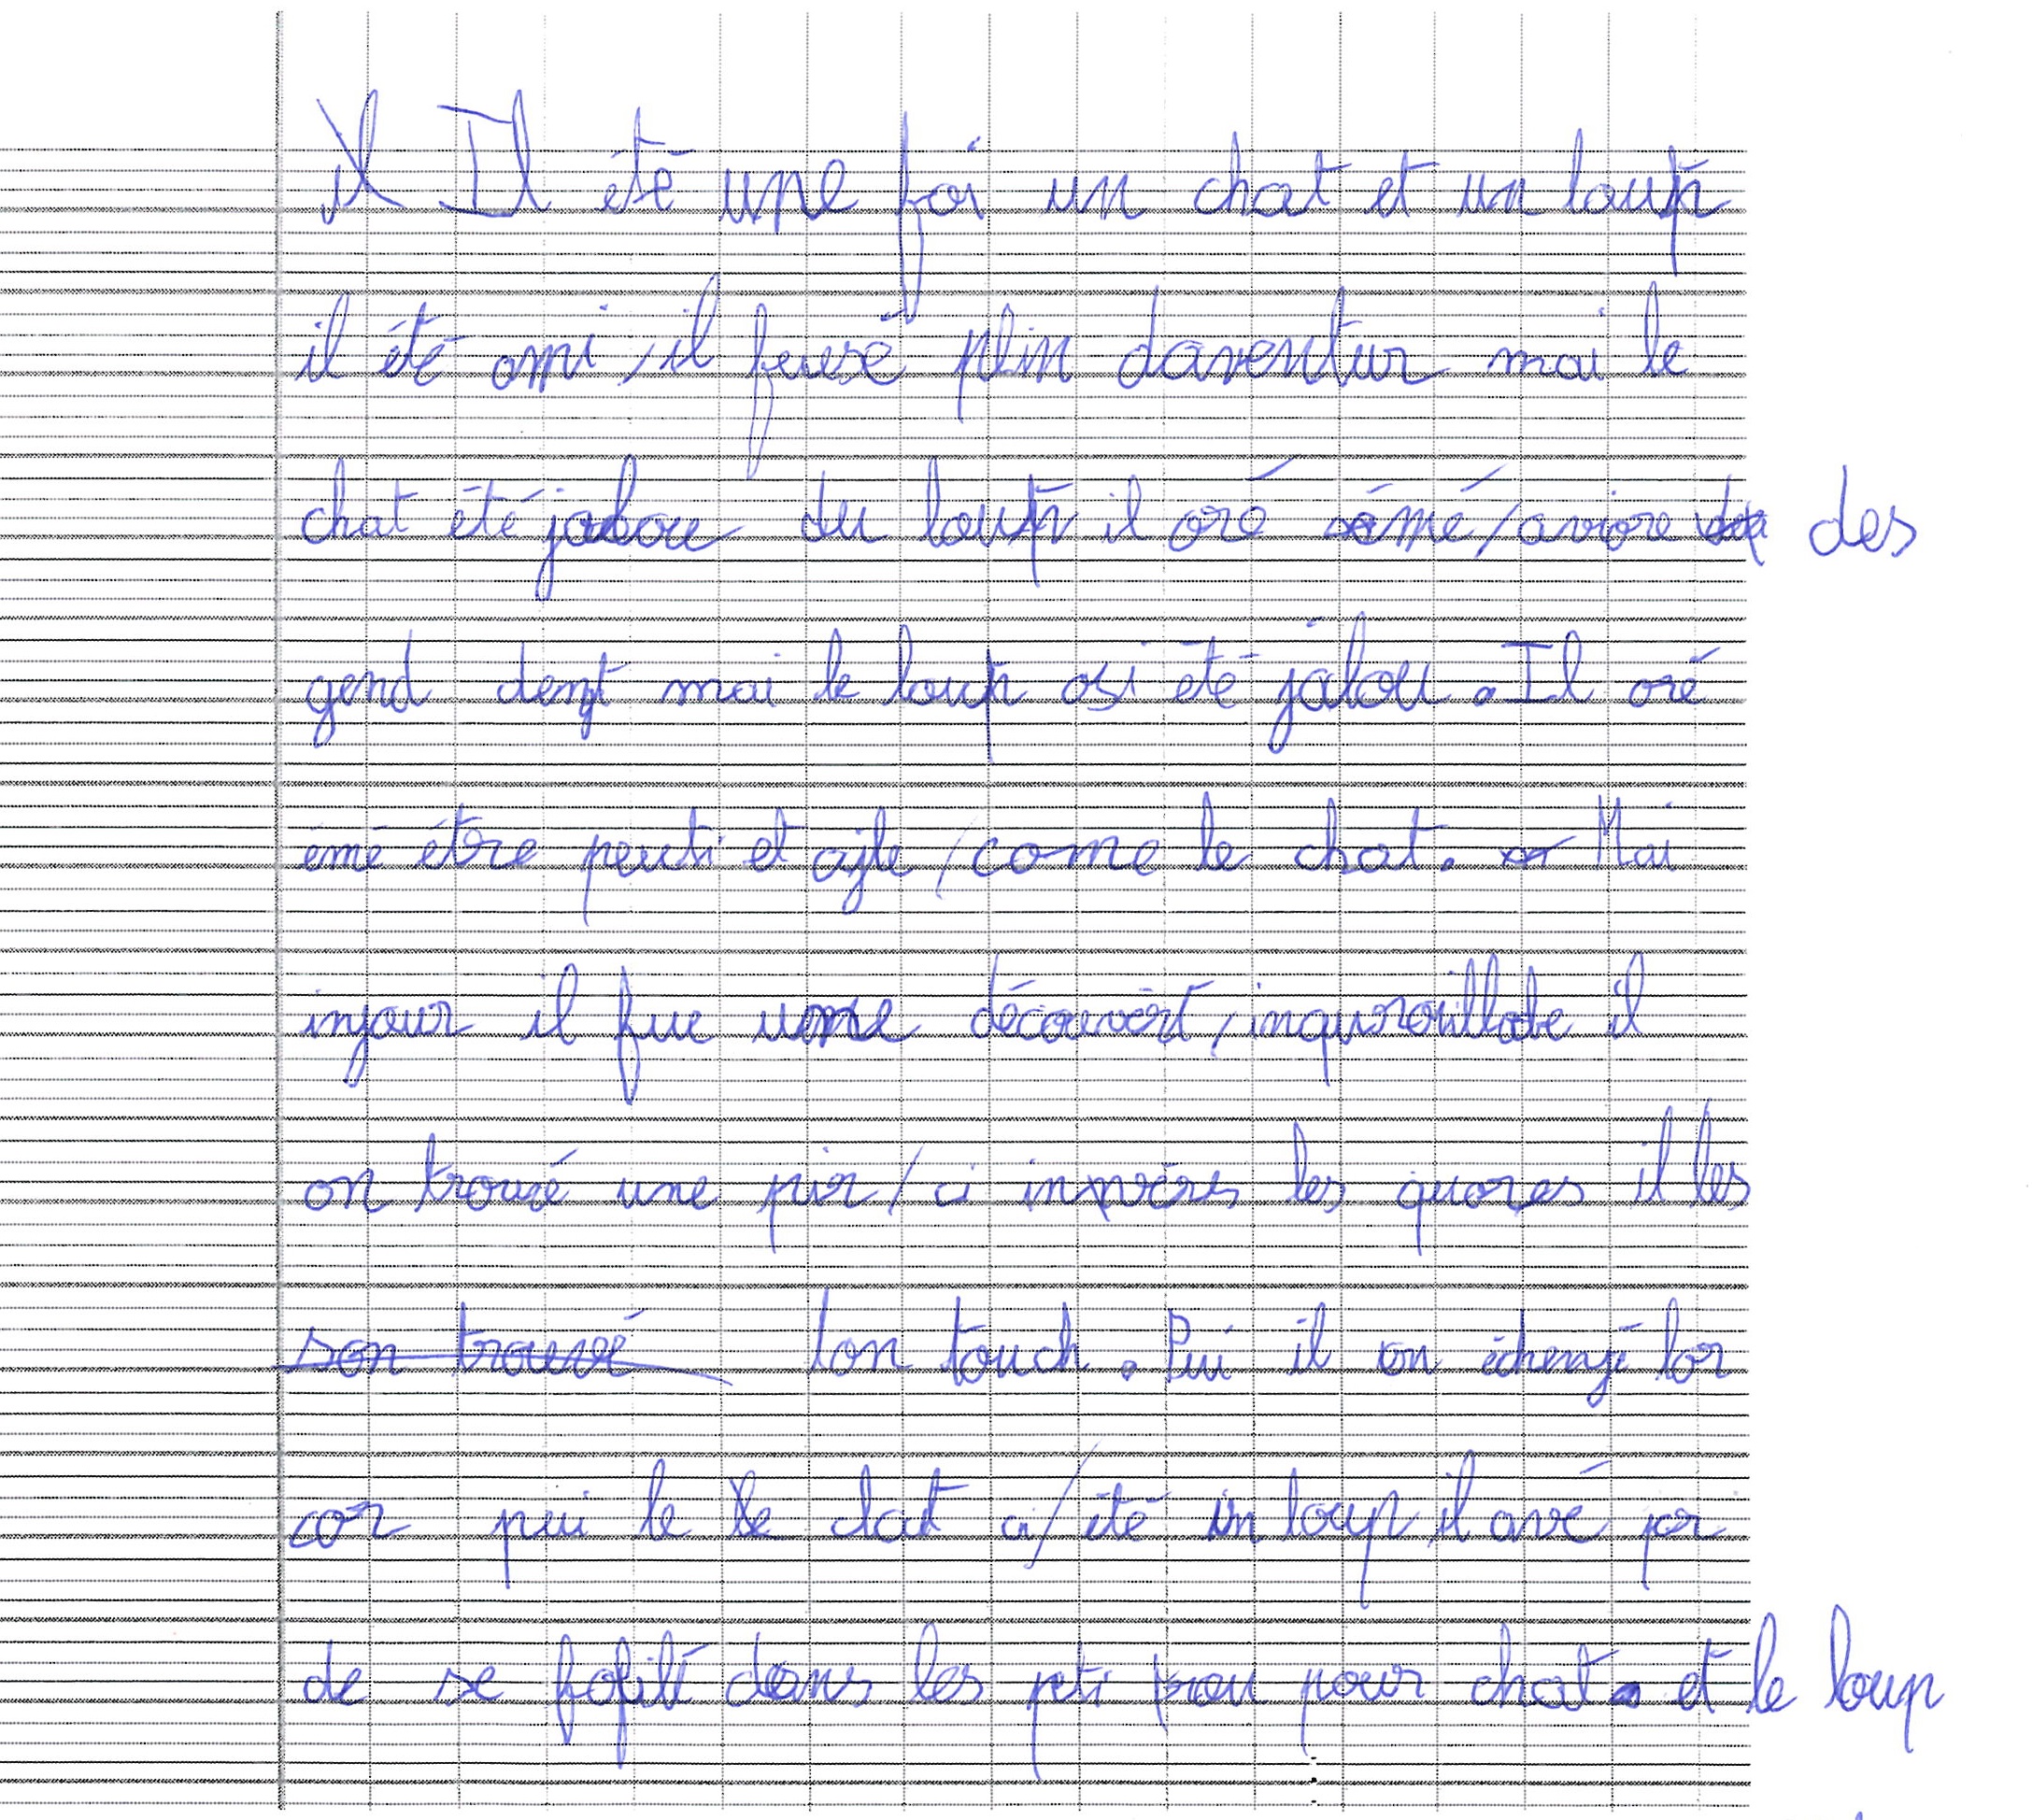 Il Il été une foi un chat et un loup
il été ami, il feusé plin daventur mai le
chat été jalou du loup il oré émé / aviore des
gend dent mai le loup osi été jalou. Il oré
émé étre peuti et ajile, come le chat. Mai
injour il fue une découvert, inquroillable il
on trouvé une pir / ci invèrs les quores il les
son trouvé lon touch. Pui il on échenjé lor
cor pui le le chat ci / été in loup il avé per
de se fofilé dans les peti trou pour chat. et le loup